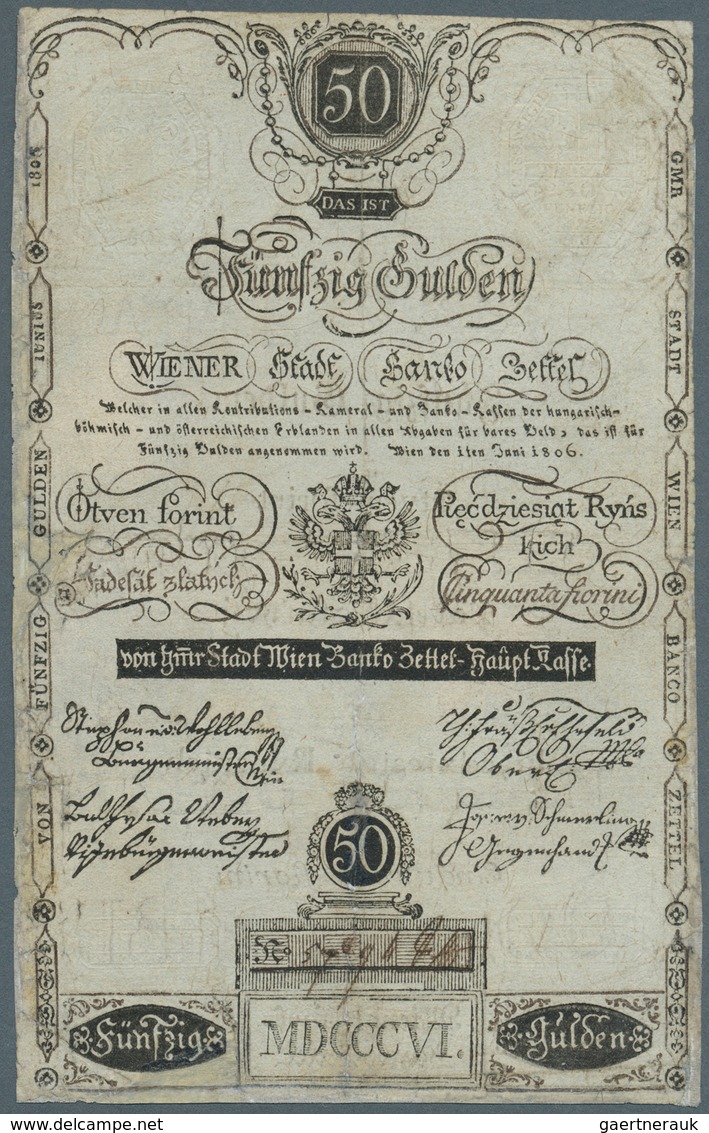 50
DAS IST
Fünfzig Gulden
WIENER Stadt Banko Zettel
Welcher in allen Kontributions - Kameral - und Banko - Kassen der hungarisch-
böhmisch - und österreichischen Erblanden in allen Abgaben für bares Geld, das ist für
Fünfzig Gulden angenommen wird. Wien den 1ten Juni 1806.
Ötven forint
Pięćdziesiąt Ryńs
kich
Padesát zlatých
Cinquanta fiorini
von hmr Stadt Wien Banko Zettel-Haupt Kasse.
Bürgermeister
Obere
Vizebürgermeister
Gegenhand
50
No
MDCCCVI.
Fünfzig
Gulden
VON FÜNFZIG GULDEN IUNIUS 1806
GMR STADT WIEN BANCO ZETTEL
©gaertnerauk